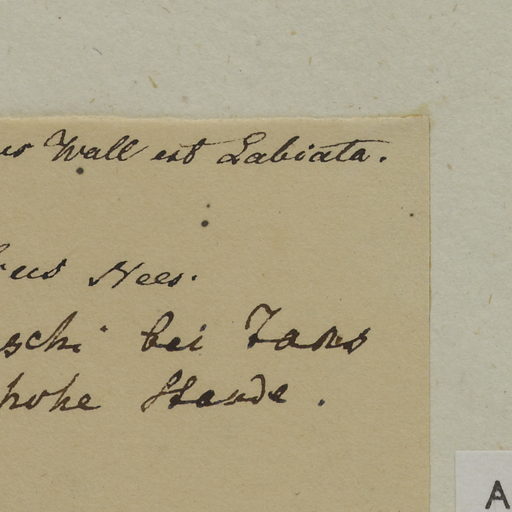 us Wall est Labiata.
us Nees.
schi bei Taks
hohe Staude.
A